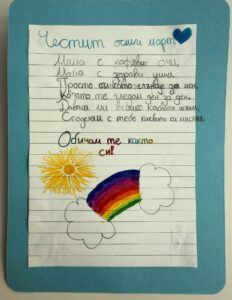 Честит осми март
Мама с кафяви очи,
Мама с здрави
Просто си като слънце за мен,
Когато те гледам ден за ден.
Даваш ми всичко каквото искам,
Споделям с тебе каквото си мисля,
Обичам те както
си!